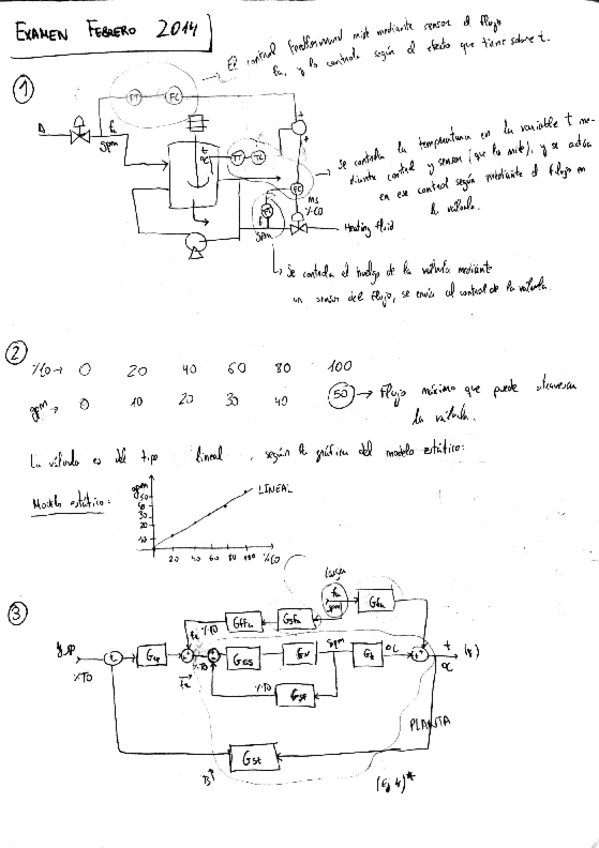 EXAMEN FEBRERO 2014
El control Feedforward mide mediante sensor el flujo
fa, y lo controla según el efecto que tiene sobre t.
①
FT FC
A
fa
gpm
t
ºC
TT TC
+
+
Se controla la temperatura en la variable t me-
diante control y sensor (que lo mide), y se
en ese control según mediante el flujo en
la válvula.
FC
ms
%CO
FT
f
gpm
Heating fluid
Se controla el de la válvula mediante
un sensor del flujo, se envía al control de la válvula.
②
%CO → 0 20 40 60 80 100
gpm → 0 10 20 30 40 50 → Flujo máximo que puede atravesar
la válvula.
La válvula es del tipo lineal, según la gráfica del modelo estático:
Modelo estático:
gpm
50
40
30
20
10
LINEAL
20 40 60 80 100 %CO
③
fa
gpm
Gfa
Gffa
Gsfa
%TO
y_sp
%TO
%TO
gpm
Gt
ºC
t
ºC
(y)
%TO
Gsf
PLANTA
Gst
(Ej 4)*